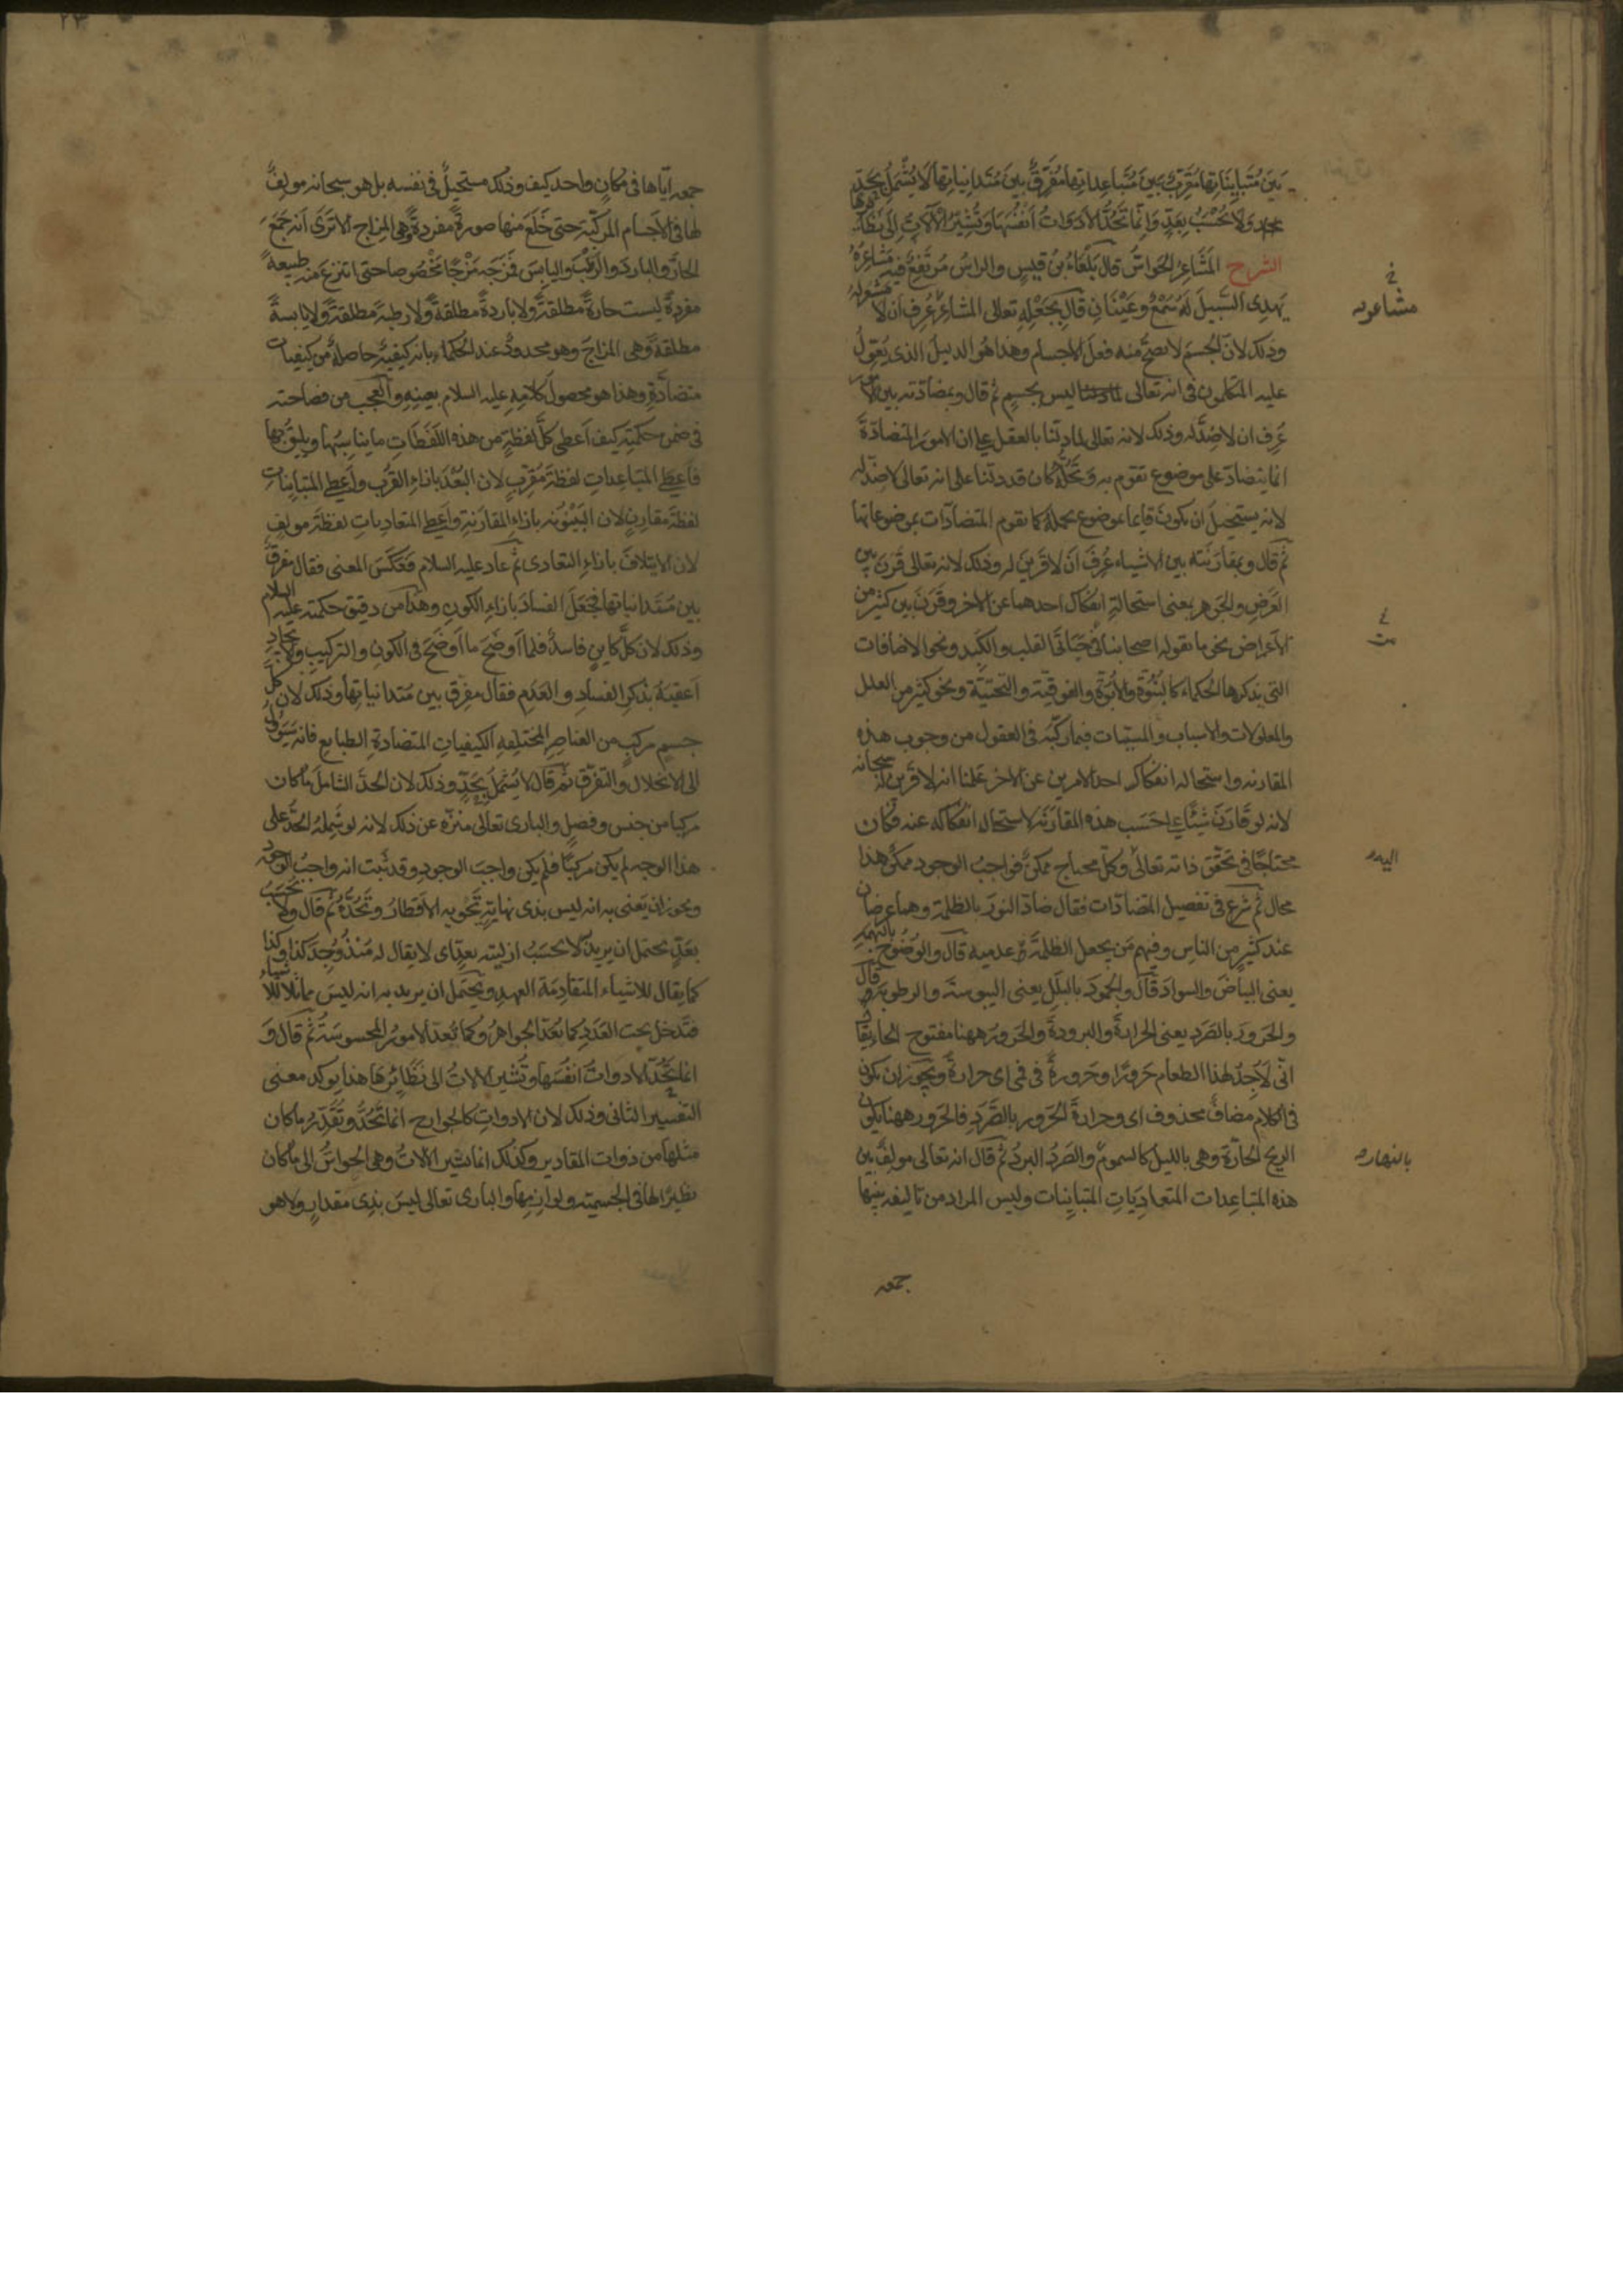 بَين مُتَبايِنَاتِها مُقَرِّبٌ بَينَ مُتَبَاعِدَاتِها مُفَرِّقٌ بينَ مُتَدانِيَاتِها لَا يُشْمَلُ بِحَدٍّ
وَلَا يُحْسَبُ بِعَدٍّ وَاِنَّما تَحُدُّ الأَدَوَاتُ اَنفُسَهَا وَتُشِيرُ الْآلَاتُ اِلى نَظَائِرِها
الشرح المَشَاعِرُ الحَوَاسُّ قالَ بَلْعَاءُ بنُ قيسٍ والراسُ مُرتَفِعٌ فيهِ مَشَاعِرُهُ
يَهدِى السَّبِيلَ لَهُ سَمْعٌ وعَيْنَانِ قال بِجَعْلِهِ تعالى المشاعِرَ عُرِفَ اَن لا مَشعَرَ لَهُ
وذلك لانّ الجسمَ لا يصحّ منه فعلُ الاجسام وهذا هُو الدليلُ الذى يُعَوِّلُ
عليه المتكلمون فى انه تعالى ليس بجسمٍ ثم قال وبمضادّته بين الامور
عُرِف ان لا ضِدَّ له وذلك لانه تعالى لما دلّنا بالعقل على ان الامورَ المتضادّةَ
انما يتضادّ على موضوع تقوم به وتَحُلُّهُ كان قد دلّنا على انه تعالى لا ضدّ له
لانه يستحيلُ ان يكونَ قايما بموضوع يحلّه كما تقوم المتضادّات بموضوعاتها
ثم قال وبمقارَنَته بين الاشياء عُرِفَ اَن لا قَرينَ له وذلك لانه تعالى قَرَنَ بين
العَرَضِ والجَوهر بمعنى استحالةِ انفكاك احدهما عن الاخر وقَرَنَ بين كثيرٍ من
الاَعراض نحو ما يقوله اصحابنا فى حَيَاتَىِ القلب والكَبِد ونحو الاضافات
التى يذكرها الحكماء كالبُنُوَّة والاُبُوَّة والفوقيّة والتحتيّة ونحو كثيرٍ من العلل
والمعلولات والاسباب والمسبّبات فيما ركّبَهُ فى العقول من وجوب هذه
المقارنه واستحاله انفكاك احد الامرين عن الاخر عَلِمنا انه لا قَرينَ لَهُ سبحانه
لانه لو قَارَنَ شيئًا على حَسَب هذه المقارَنَه لاستحال انفكاكه عنه فكان
محتاجًا فى تَحَقُّق ذاته تعالى وكلّ محتاج ممكنٌ فواجبُ الوجود ممكنٌ هذا
محال ثم شَرَعَ فى تفصيل المتضادّات فقال ضادَّ النورَ بالظلمة وهما عرضان
عند كثيرٍ من الناس وفيهم مَن يجعل الظلمةَ عدميه قال والوُضُوحَ بالبُهمة
يعنى البياضَ والسوادَ قَال والجُمُودَ بالبَلَلِ يعنى اليبوسةَ والرطوبةَ قال
والحَرورَ بالصَّرَدِ يعنى الحرارةَ والبرودةَ والحَرورُ ههنا مفتوح الحاء يقال
انّى لَاَجِدُ لهذا الطعام حَرورًا وحَرورةً فى فمى اى حرارةً ويَجوز ان يكونَ
فى الكلام مضافٌ محذوف اى وحرارةَ الحَرور بالصَّرَدِ فالحَرور ههنا يكون
الريحَ الحارّةَ وهى بالليل كالسموم والصَّرَدُ البردُ ثم قال انه تعالى مولِّفٌ بين
هذه المتباعِدات المتعادِيَاتِ المتبايِنات وليس المراد من تاليفه بينها
جمعه
مشاعره
اليه
بالنهار
٢٣
جمعه اياها فى مكانٍ واحد كيف وذلك مستحيلٌ فى نفسه بل هو سبحانه مولّفٌ
لها فى الاَجسام المركّبة حتى خَلَعَ منها صورةً مفردةً هى المزاج الا تَرَى اَنه جَمَعَ
الحارَّ والباردَ والرطْبَ واليابسَ فَمزَجَه مَزْجًا مخصوصا حتى انتزعَ منه طبيعةً
مفردةً ليست حارةً مطلقةً ولا باردةً مطلقةً ولا رطبةً مطلقةً ولا يابسةً
مطلقةً وهى المزاجُ وهو محدودٌ عند الحكماء بانه كيفيّه حاصلةٌ من كيفيات
متضادّةٍ وهذا هو محصول كلامِهِ عليه السلام بعينِهِ والعجب من فصاحته
فى ضمن حكمتِه كيف اَعطى كلَّ لفظةٍ من هذه اللّفَظَاتِ ما يناسبُها ويليقُ بها
فاَعطى المتباعِداتِ لفظةَ مُقَرِّبٍ لان البُعْدَ بازاءِ القُرب واَعطى المتبايناتِ
لفظةَ مقارِنٍ لان البَيْنُونه بازاءِ المقارَنةِ واَعطى المتعادياتِ لفظةَ مولّفٍ
لان الايتلافَ بازاءِ التعادى ثم عاد عليه السلام فعَكَسَ المعنى فقال مفرّقٌ
بين متدانياتها فجَعَلَ الفسادَ بازاءِ الكونِ وهذا من دقيق حكمته عليه السلام
وذلك لان كلَّ كاينٍ فاسدٌ فلما اَوضَحَ ما اَوضَحَ فى الكونِ والتركيبِ والايجادِ
اَعقبَهُ بذكرِ الفسادِ والعَدَمِ فقال مفرّق بين مُتدانياتِها وذلك لان كلَّ
جسمٍ مركبٍ من العناصرِ المختلفهِ الكيفياتِ المتضادةِ الطبايع فانه سَيَؤُلُ
الى الانحلالِ والتفرّق ثم قال لا يُشمَلُ بِحَدٍّ وذلك لان الحدَّ الشاملَ ما كان
مركبا من جنسٍ وفصلٍ والبارى تعالى منزّه عن ذلك لانه لو شَمِلَهُ الحدُّ على
هذا الوجه لم يكن مركبًا فلم يكن واجبَ الوجودِ وقد ثبت انه واجبُ الوجودِ
ويجوز ان يَعنى به انه ليس بذى نهايةٍ تَحْويه الاَقطارُ وتَحُدُّهُ ثم قال ولا يُحسَبُ
بعَدٍّ يحتمل ان يريدَ لا تُحسَبُ ازليته بعدٍّ اى لا يقال له مُنْذُ وُجِدَ كذا وكذا
كما يقال للاشياء المتقادِمَة العهدِ ويُحتمَل ان يريد به انه ليسَ مماثلا للاشياء
فتَدخل تحت العَدَدِ كما تُعَدُّ الجواهرُ وكما تُعدُّ الامورُ المحسوسَةُ ثم قال وَ
انما تَحُدُّ الادواتُ انفُسَها وتُشير الالاتُ الى نَظَائِرِهَا هذا يوكد معنى
التفسيرِ الثانى وذلك لان الادواتِ كالجوارح انما تَحُدُّ وتُقَدِّرُ ما كان
مثلَها من ذوات المقادير وكذلك انما تشير الالاتُ وهى الحواسُّ الى ما كان
نظيرًا لها فى الجسميّه ولوازِمِها والبارى تعالى ليسَ بذِى مقدارٍ ولا هو